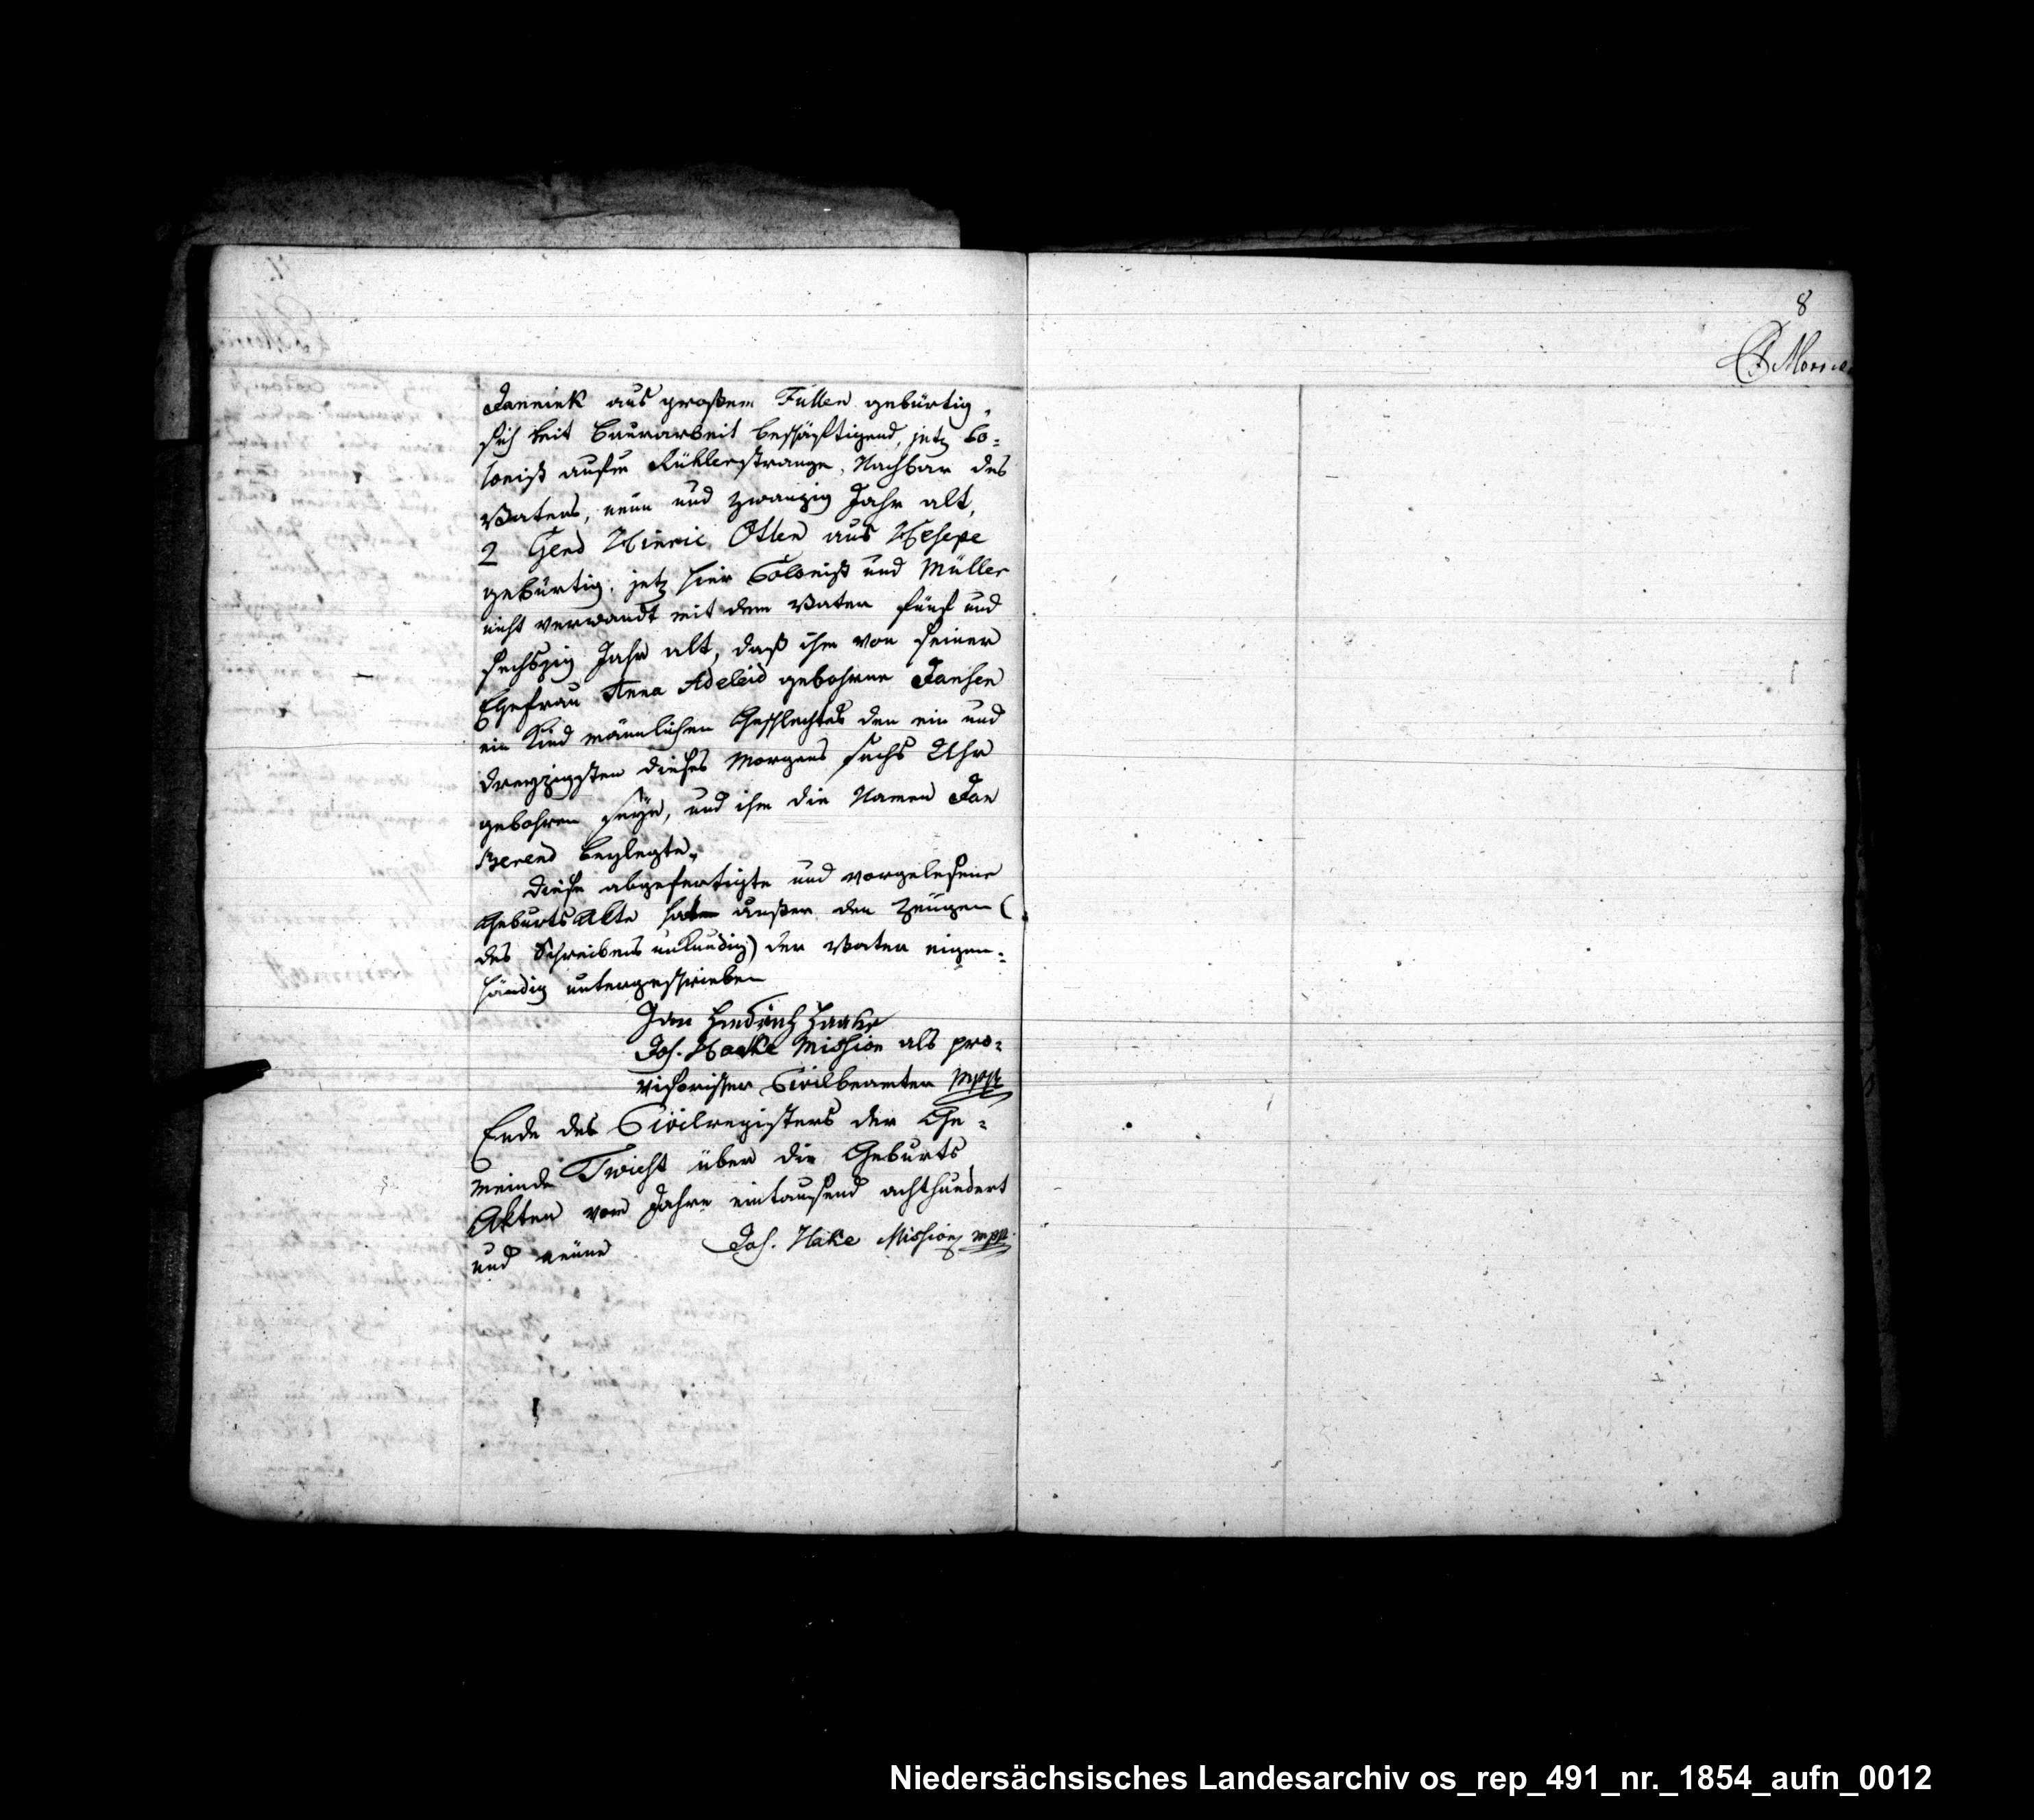 Jannink aus großem Füllen gebürtig,
sich mit Baurarbeit beschäftigend, jetz Co-
lonist aufm Rühlerstrange, Nachbar des
Vaters, neun und zwanzig Jahr alt,
2 Gerd Hinric Otten aus Hesepe
gebürtig. jetz hier Colonist und Müller
nicht verwandt mit dem Vater fünf und
sechszig Jahr alt, daß ihm von seiner
Ehefrau Anna Adeleid gebohrne Jansen
ein Kind mänlichen Geschlechtes den ein und
dreyzigsten dieses Morgens sechs Uhr
gebohren seye, und ihm die Namen Jan
Berend beylegte.
Diese abgefertigte und vorgelesene
Geburts Akte hat außer den Zeugen (
des Schreibens unkundig) der Vater eigen-
händig untergeschrieben
Jan Hindrich Haake
Jos. Haake Mission als pro-
visorischer Civilbeamter mppr
Ende des Civilregisters der Ge-
meinde Twicht über die Geburts
Akten vom Jahre eintausend achthundert
und neune Jos. Hake Mission mppr
8
Niedersächsisches Landesarchiv os_rep_491_nr._1854_aufn_0012